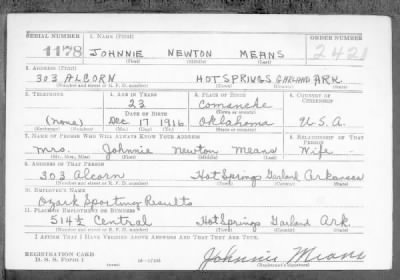 SERIAL NUMBER 1. NAME (Print) ORDER NUMBER
1178 JOHNNIE NEWTON MEANS 2421
(First) (Middle) (Last)
2. ADDRESS (Print)
303 ALCORN HOT SPRINGS GARLAND ARK.
(Number and street or R. F. D. number) (Town) (County) (State)
3. TELEPHONE 4. AGE IN YEARS 5. PLACE OF BIRTH 6. COUNTRY OF CITIZENSHIP
23 Comanche
DATE OF BIRTH (Town or county)
(None) Dec 17 1916 Oklahoma U.S.A.
(Exchange) (Number) (Mo.) (Day) (Yr.) (State or country)
7. NAME OF PERSON WHO WILL ALWAYS KNOW YOUR ADDRESS 8. RELATIONSHIP OF THAT PERSON
Mrs. Johnnie Newton Means Wife
(Mr., Mrs., Miss) (First) (Middle) (Last)
9. ADDRESS OF THAT PERSON
303 Alcorn Hot Springs Garland Arkansas
(Number and street or R. F. D. number) (Town) (County) (State)
10. EMPLOYER'S NAME
Ozark Sporting Results
11. PLACE OF EMPLOYMENT OR BUSINESS
514½ Central Hot Springs Garland Ark.
(Number and street or R. F. D. number) (Town) (County) (State)
I AFFIRM THAT I HAVE VERIFIED ABOVE ANSWERS AND THAT THEY ARE TRUE.
REGISTRATION CARD
D. S. S. FORM 1 Johnnie Means
(Registrant's signature)